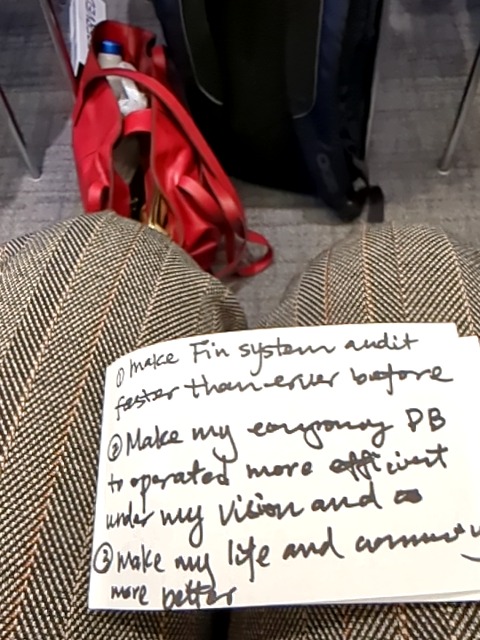 ① Make Fin system audit
faster than ever before
② Make my DB
to operated more efficient
under my vision and
③ Make my life and
more better